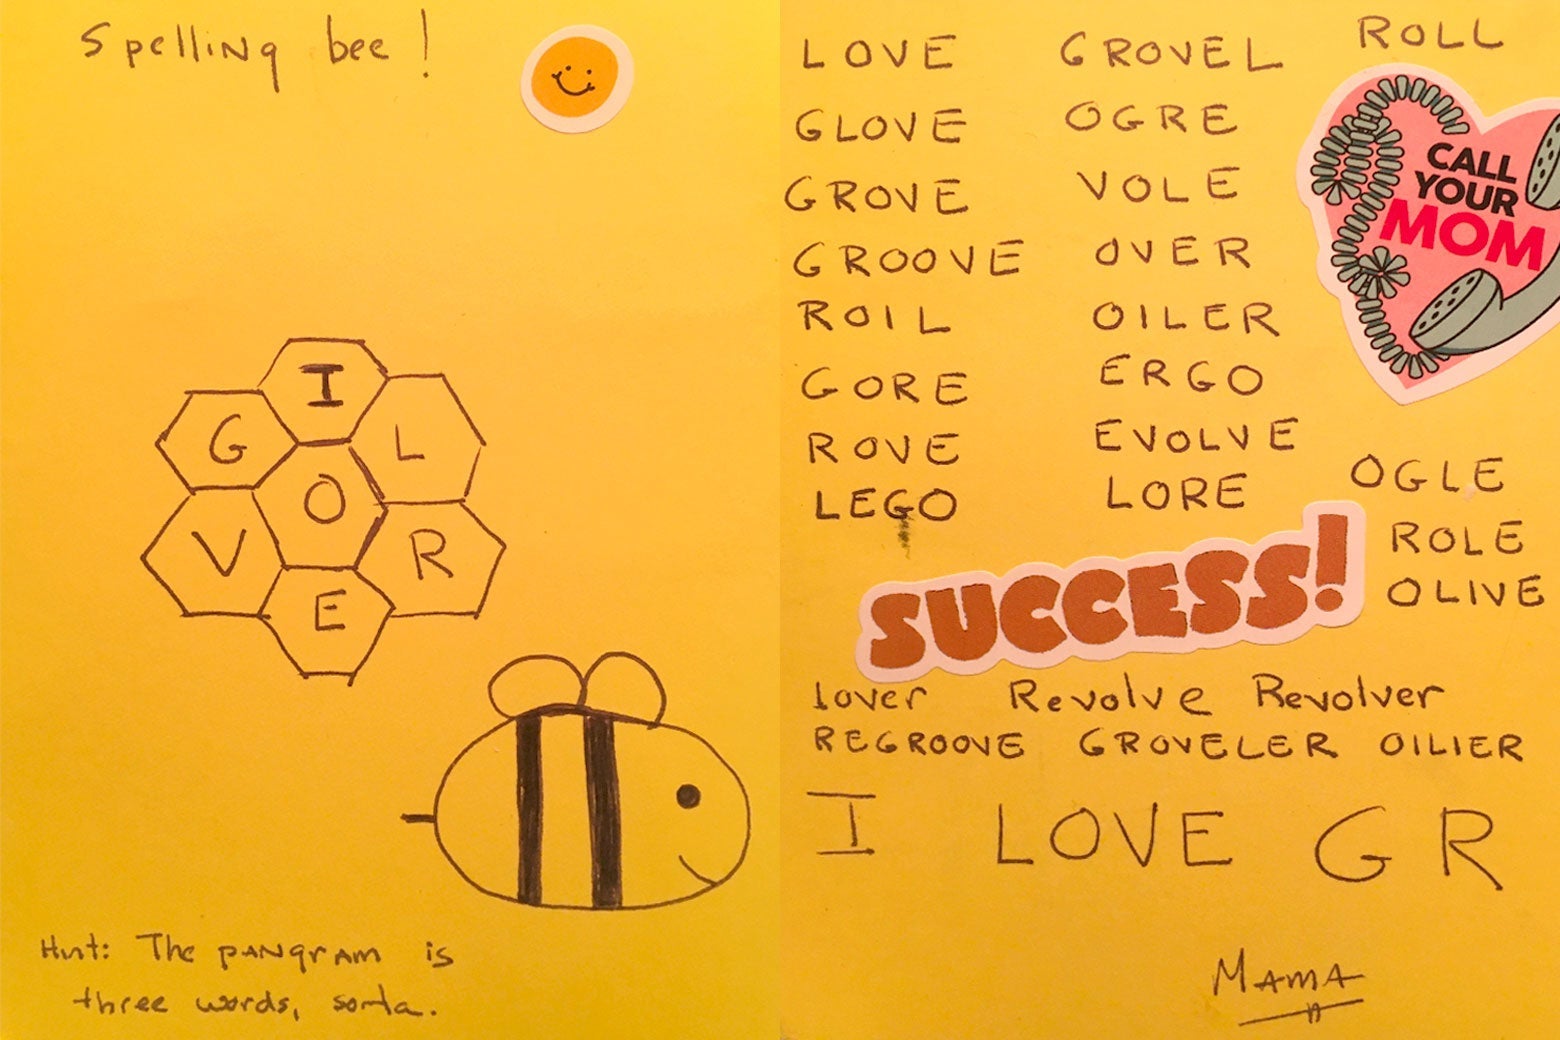 Spelling bee!
I
G L
O
V R
E
Hint: The pangram is
three words, sorta.
LOVE GROVEL ROLL
GLOVE OGRE
GROVE VOLE
GROOVE OVER
ROIL OILER
GORE ERGO
ROVE EVOLVE
LEGO LORE
CALL
YOUR
MOM
OGLE
ROLE
OLIVE
SUCCESS!
lover Revolve Revolver
REGROOVE GROVELER OILIER
I LOVE GR
MAMA